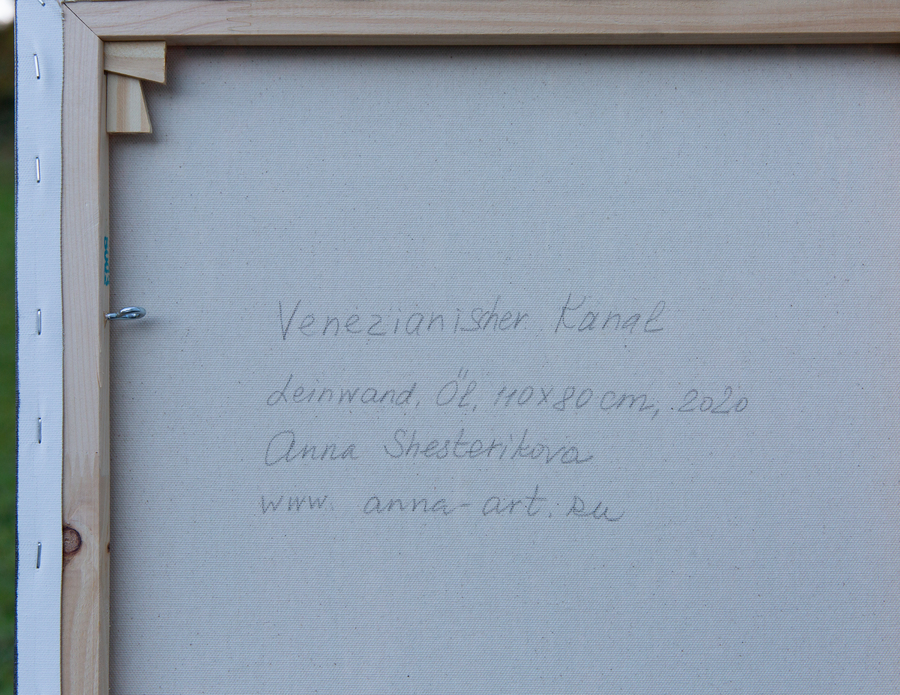 Venezianischer Kanal
Leinwand, Öl, 110x80 cm, 2020
Anna Shesterikova
www. anna-art.ru